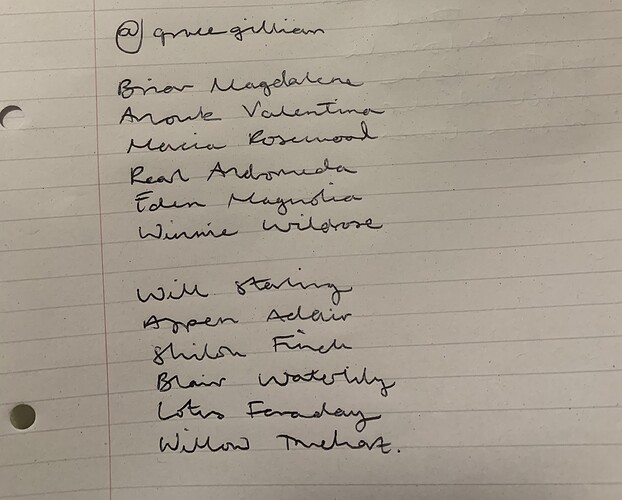 @gracegillian
Briar Magdalene
Anouk Valentina
Marcia Rosewood
Pearl Andromeda
Eden Magnolia
Winnie Wildrose
Will Sterling
Aspen Adair
Shiloh Finch
Blair Waterlily
Lotus Faraday
Willow